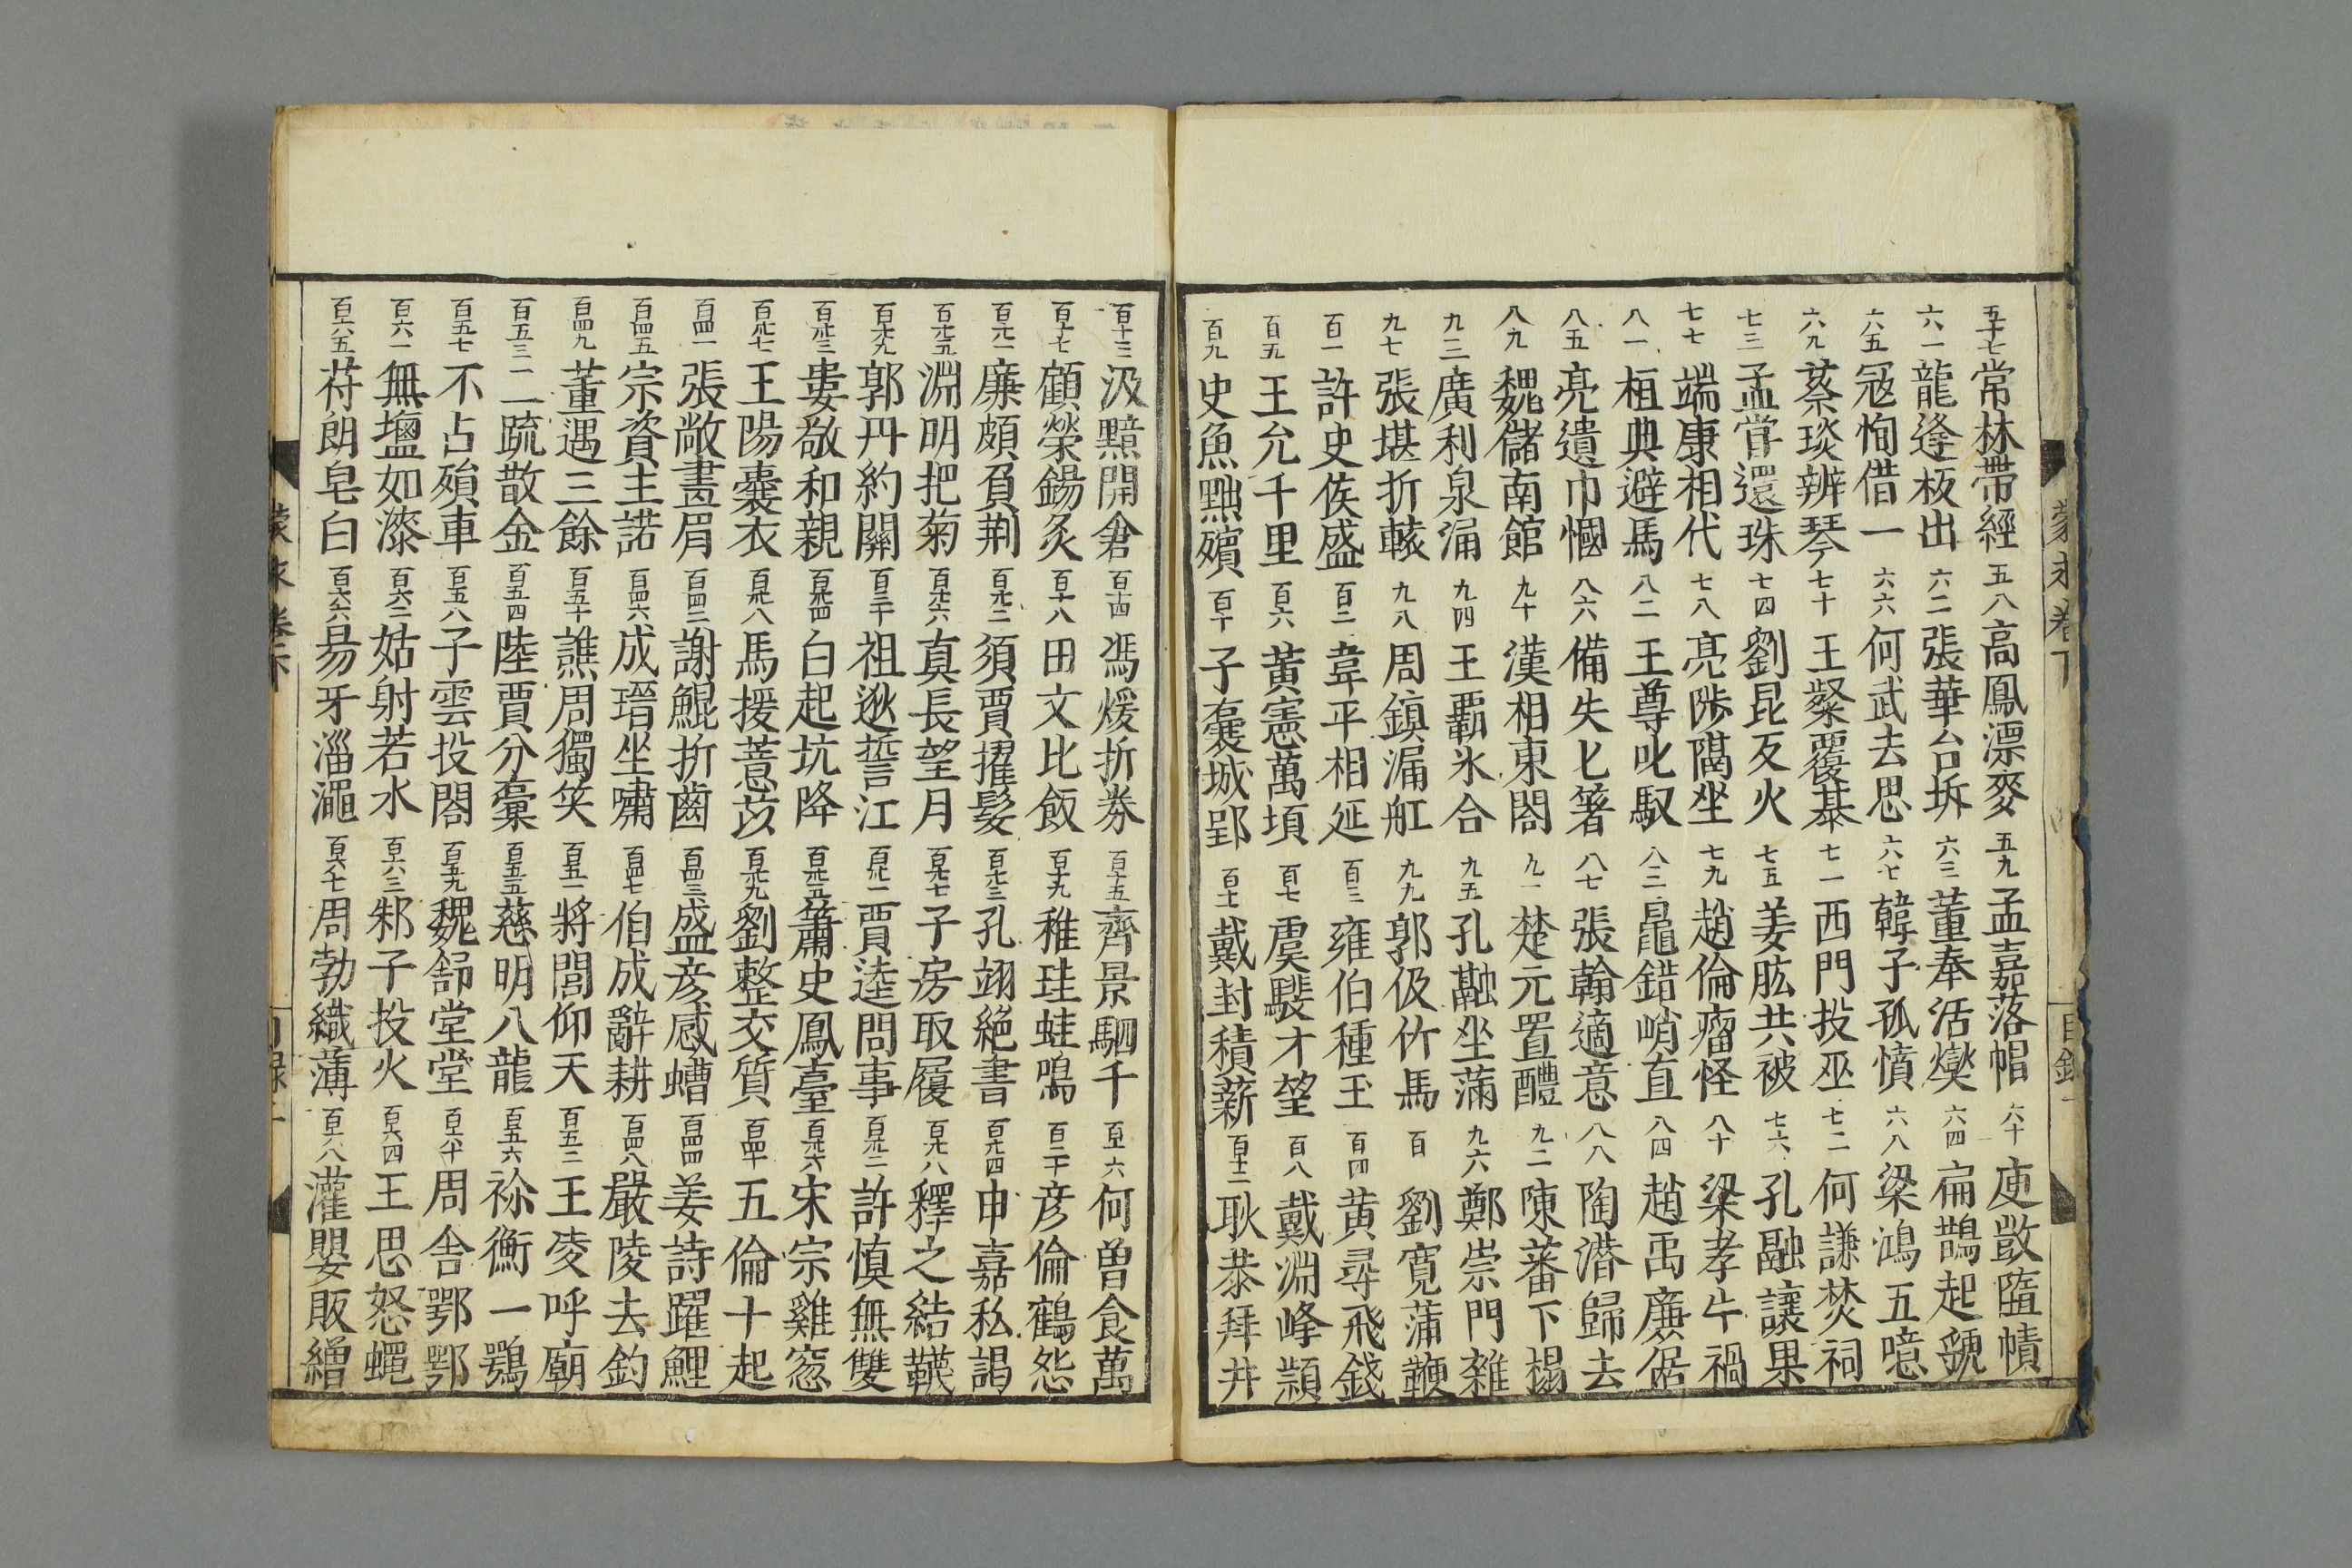 五十七 常林帶經 五八 高鳳漂麥 五九 孟嘉落帽 六十 庾敳墮幘
六一 龍逄板出 六二 張華台坼 六三 董奉活燮 六四 扁鵲起虢
六五 寇恂借一 六六 何武去思 六七 韓子孤憤 六八 梁鴻五噫
六九 蔡琰辨琴 七十 王粲覆棊 七一 西門投巫 七二 何謙焚祠
七三 孟嘗還珠 七四 劉昆反火 七五 姜肱共被 七六 孔融讓果
七七 端康相代 七八 亮陟隔坐 七九 趙倫瘤怪 八十 梁孝牛禍
八一 桓典避馬 八二 王尊叱馭 八三 鼂錯峭直 八四 趙禹廉倨
八五 亮遺巾幗 八六 備失匕箸 八七 張翰適意 八八 陶潜歸去
八九 魏儲南館 九十 漢相東閤 九一 楚元置醴 九二 陳蕃下榻
九三 廣利泉涌 九四 王霸氷合 九五 孔融坐滿 九六 鄭崇門雜
九七 張堪折轅 九八 周鎮漏舡 九九 郭伋竹馬 百 劉寬蒲鞭
百一 許史侯盛 百二 韋平相延 百三 雍伯種玉 百四 黄尋飛錢
百五 王允千里 百六 黃憲萬頃 百七 虞騑才望 百八 戴淵峰頴
百九 史魚黜殯 百十 子囊城郢 百十一 戴封積薪 百十二 耿恭拜井
蒙求卷下 目録
百十三 汲黯開倉 百十四 馮煖折券 百十五 齊景駟千 百十六 何曽食萬
百十七 顧榮錫炙 百十八 田文比飯 百十九 稚珪蛙鳴 百二十 彦倫鶴怨
百廿一 廉頗負荆 百廿二 須賈擢髮 百廿三 孔翊絶書 百廿四 申嘉私謁
百廿五 淵明把菊 百廿六 真長望月 百廿七 子房取履 百廿八 釋之結韈
百廿九 郭丹約關 百三十 祖逖誓江 百卅一 賈逵問事 百卅二 許慎無雙
百卅三 婁敬和親 百卅四 白起坑降 百卅五 簫史鳳臺 百卅六 宋宗雞窓
百卅七 王陽囊衣 百卅八 馬援薏苡 百卅九 劉整交質 百四十 五倫十起
百四一 張敞畫眉 百四二 謝鯤折齒 百四三 盛彦感螬 百四四 姜詩躍鯉
百四五 宗資主諾 百四六 成瑨坐嘯 百四七 伯成辭耕 百四八 嚴陵去釣
百四九 董遇三餘 百五十 譙周獨笑 百五一 將閭仰天 百五二 王凌呼廟
百五三 二疏散金 百五四 陸賈分橐 百五五 慈明八龍 百五六 祢衡一鶚
百五七 不占殞車 百五八 子雲投閣 百五九 魏舒堂堂 百六十 周舎鄂鄂
百六一 無塩如漆 百六二 姑射若水 百六三 邾子投火 百六四 王思怒蠅
百六五 苻朗皂白 百六六 易牙淄澠 百六七 周勃織薄 百六八 灌嬰販繒
蒙求卷下 目録